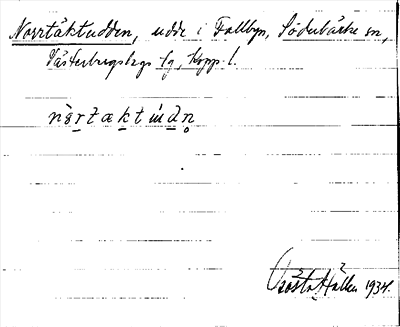 Norrtäktudden, udde i Fallbyn, Söderbärke sn,
Västerbergslags fg, Kopp. l.
nòrtæktúdn̥
Gösta Hallén 1934.